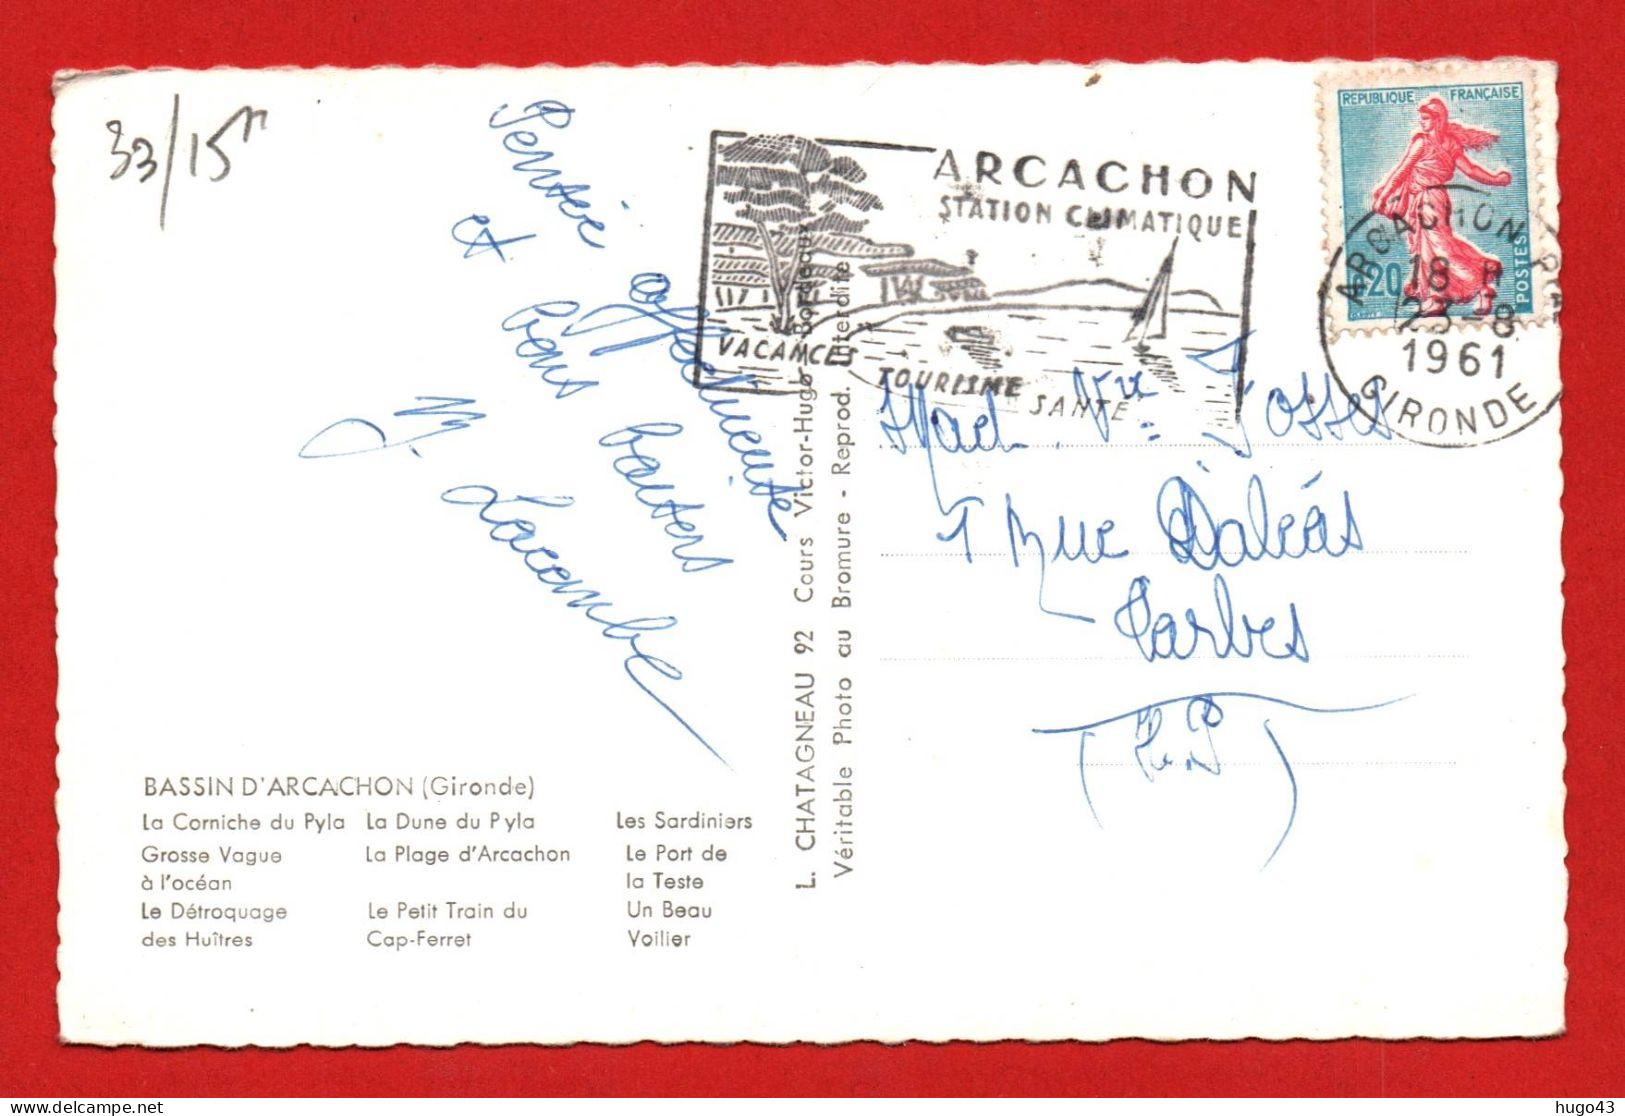 33/15
Pensée affectueuse
et bons baisers
M. Lacombe
ARCACHON
STATION CLIMATIQUE
VACANCES
TOURISME
SANTÉ
REPUBLIQUE FRANÇAISE
0,20
POSTES
ARCACHON
18 H
23-8
1961
GIRONDE
Mad. Vve
1 Rue
Tarbes
(H.P)
L. CHATAGNEAU 92 Cours Victor-Hugo - Bordeaux
Véritable Photo au Bromure - Reprod. Interdite
BASSIN D'ARCACHON (Gironde)
La Corniche du Pyla La Dune du Pyla Les Sardiniers
Grosse Vague La Plage d'Arcachon Le Port de
à l'océan la Teste
Le Détroquage Le Petit Train du Un Beau
des Huîtres Cap-Ferret Voilier
hugo43